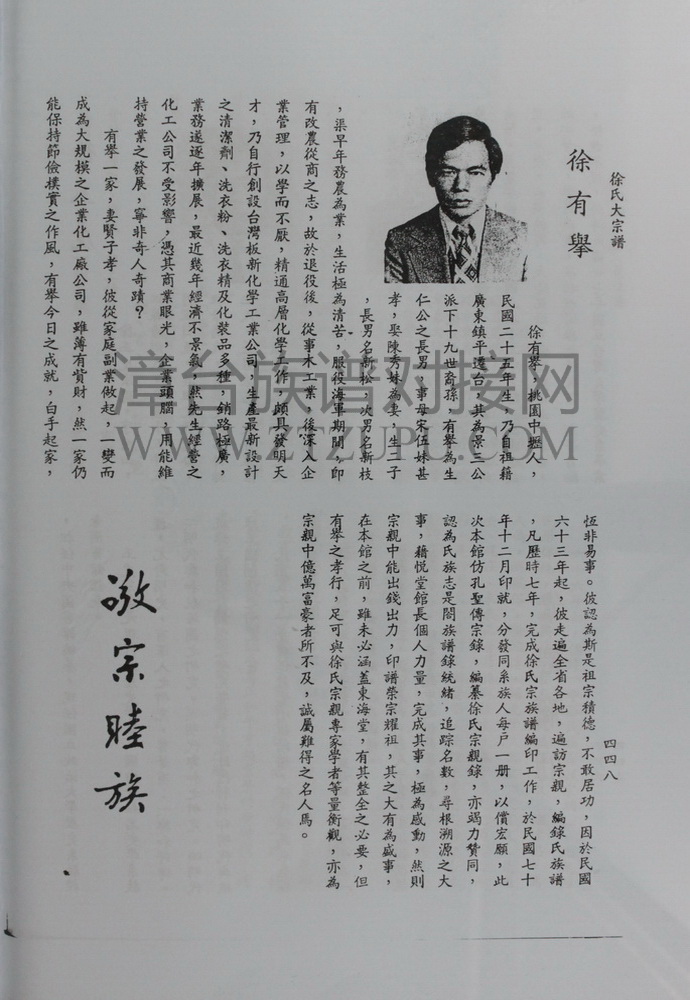 徐氏大宗譜
徐有舉
徐有舉，桃園中壢人，
民國二十五年生，乃自祖籍
廣東鎮平遷台，其為景三公
派下十九世裔孫。有舉為生
仁公之長男，事母宋伍妹甚
孝，娶陳秀妹為妻，生二子
，長男名新松，次男名新枝
，渠早年務農為業，生活極為清苦，服役海軍期間，即
有改農從商之志，故於退役後，從事木工業，後深入企
業管理，以學而不厭，精通高層化學工作，頗具發明天
才，乃自行創設台灣板新化學工業公司，生產最新設計
之清潔劑、洗衣粉、洗衣精及化裝品多種，銷路極廣，
業務遂逐年擴展，最近幾年經濟不景氣，然先生經營之
化工公司不受影響，憑其商業眼光，企業頭腦，用能維
持營業之發展，寧非奇人奇蹟？
有舉一家，妻賢子孝，彼從家庭副業做起，一變而
成為大規模之企業化工廠公司，雖薄有貲財，然一家仍
能保持節儉樸實之作風，有舉今日之成就，白手起家，
恆非易事。彼認為斯是祖宗積德，不敢居功，因於民國
六十三年起，彼走遍全省各地，遍訪宗親，編錄氏族譜
，凡歷時七年，完成徐氏宗族譜編印工作，於民國七十
年十二月印就，分發同系族人每戶一册，以償宏願，此
次本館仿孔聖傳宗錄，編纂徐氏宗親錄，亦竭力贊同，
認為氏族志是閤族譜錄統緒，追踪名數，尋根溯源之大
事，藉悅堂館長個人力量，完成其事，極為感動，然則
宗親中能出錢出力，印譜榮宗耀祖，其之大有為盛事，
在本館之前，雖未必涵蓋東海堂，有其整全之必要，但
有舉之孝行，足可與徐氏宗親專家學者等量衡觀，亦為
宗親中億萬富豪者所不及，誠屬難得之名人馬。
四四八
敬宗睦族
漳台族谱对接网
WWW.ZTZUPU.COM